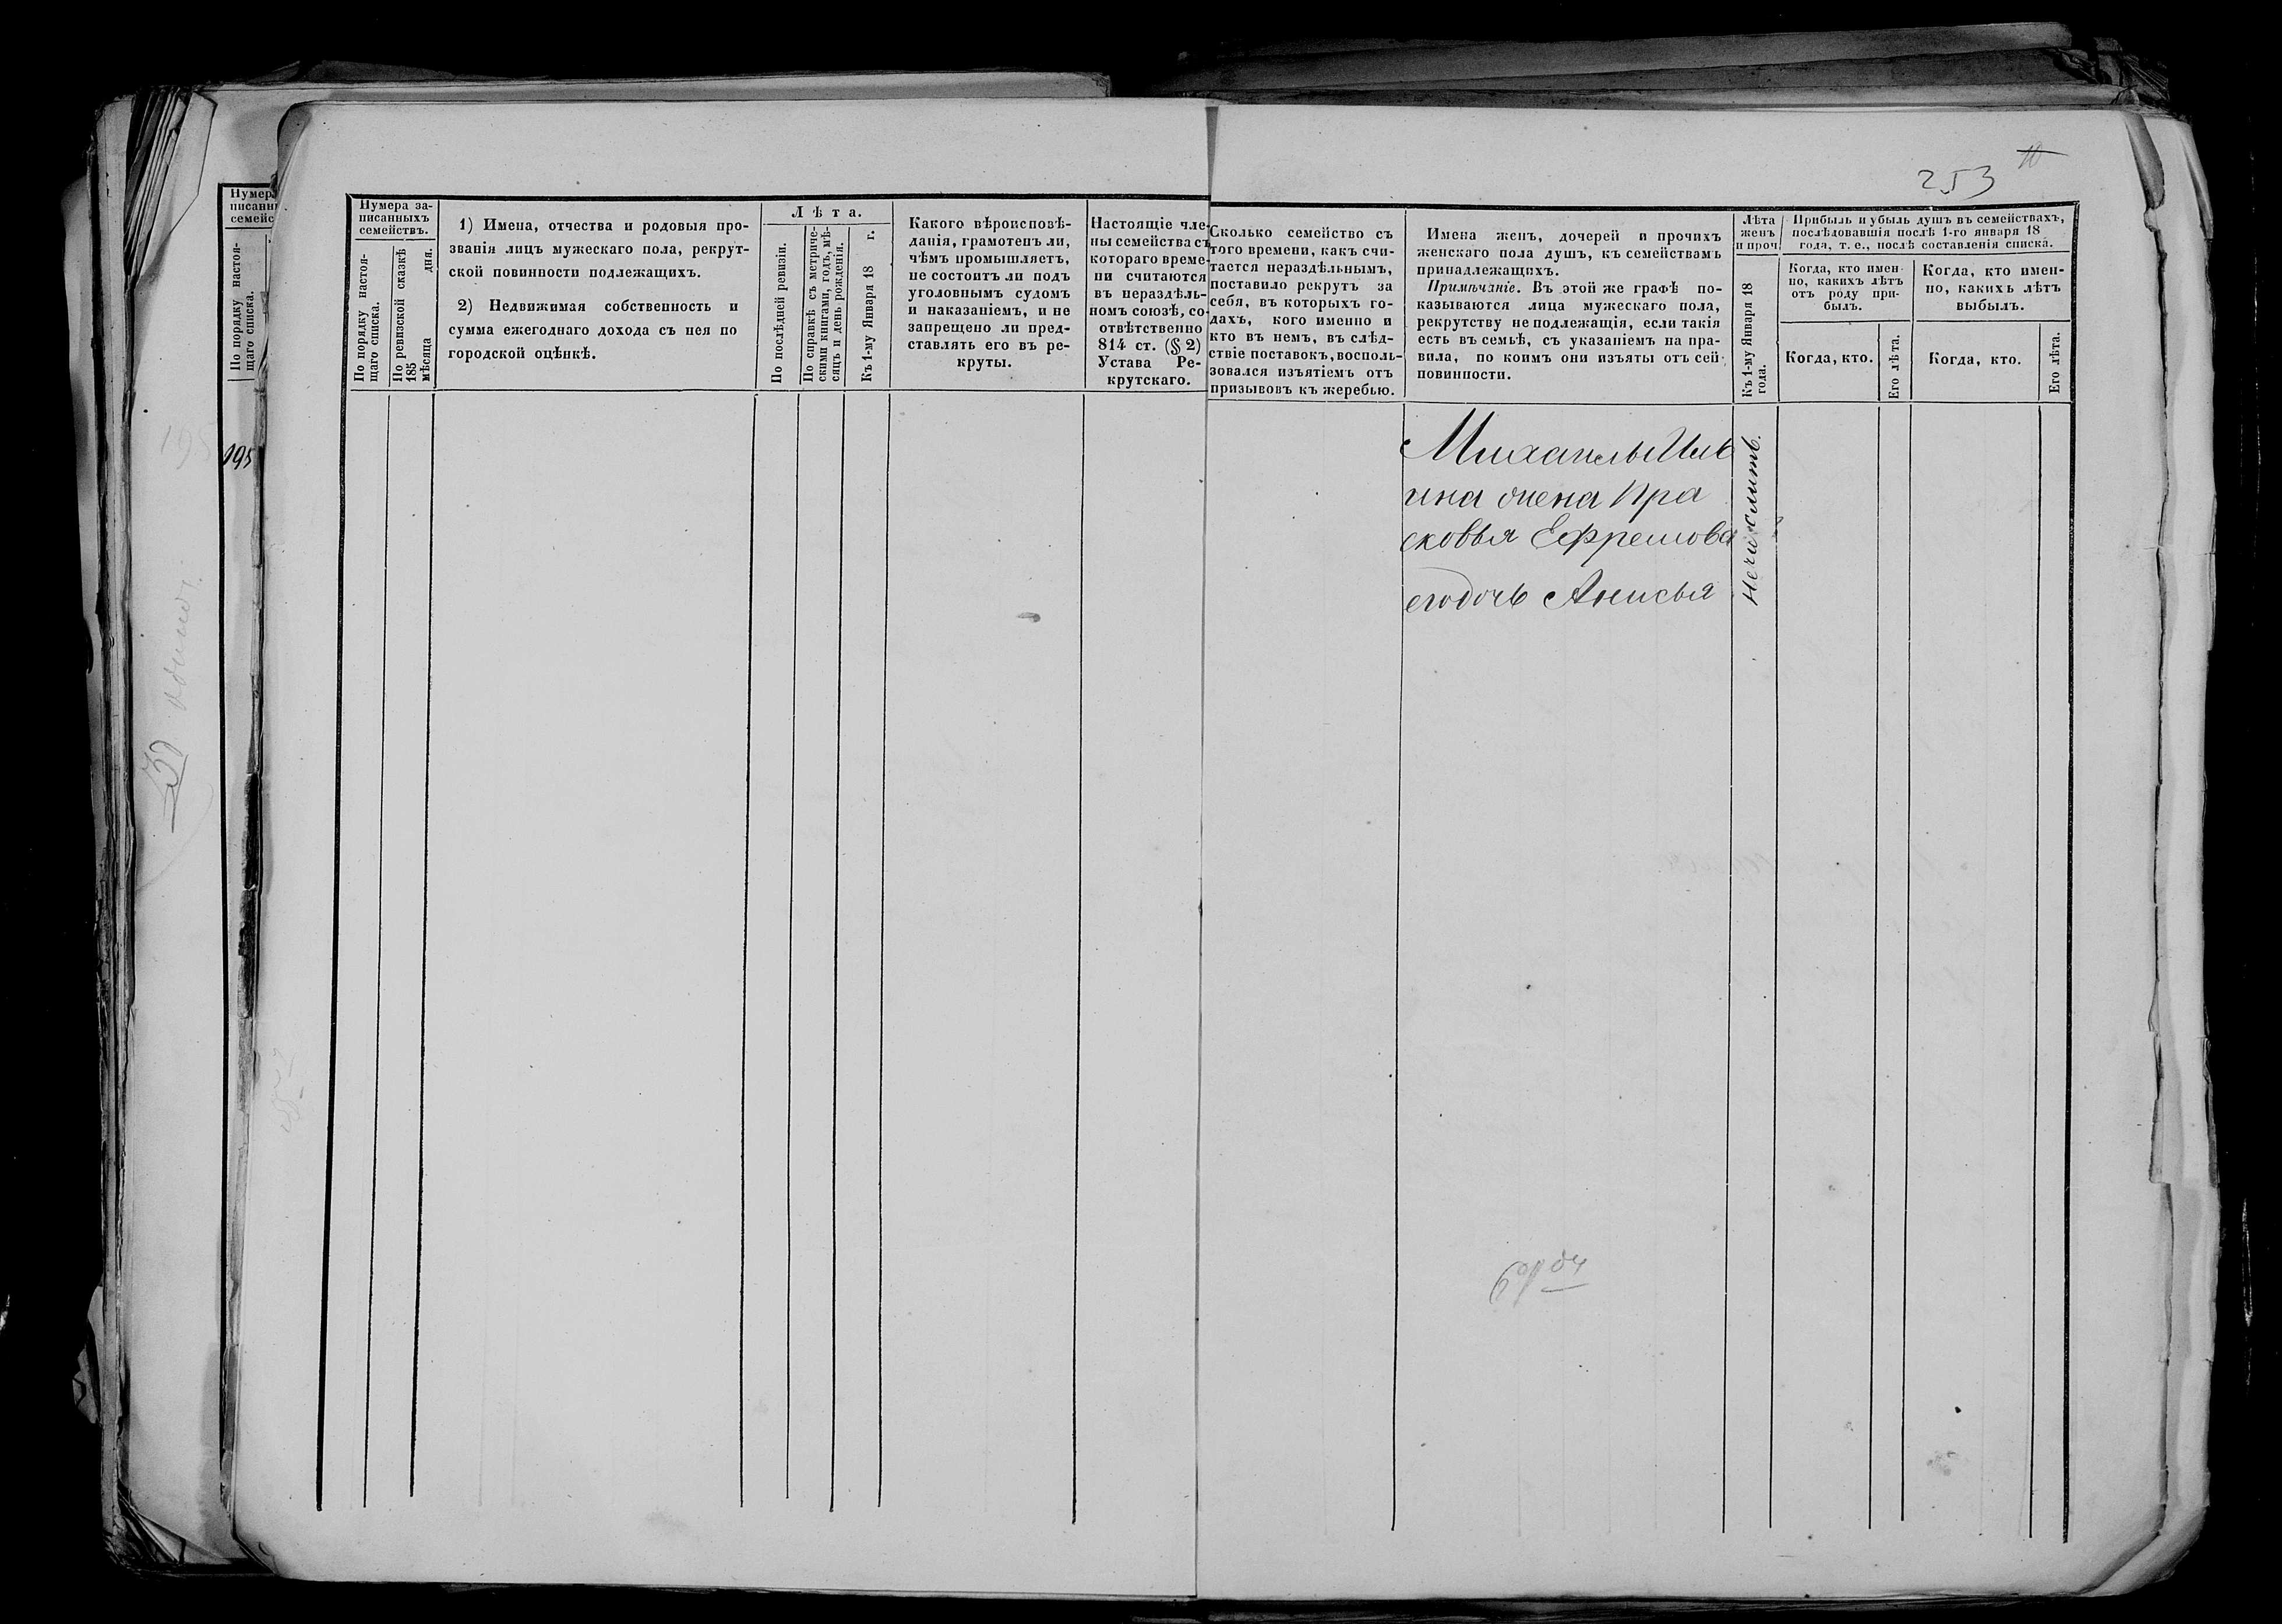 253
10
Нумера за-
писанныхъ
семействъ.
По порядку настоя-
щаго списка.
По ревизской сказкѣ
185
мѣсяца дня.
1) Имена, отчества и родовыя про-
званія лицъ мужескаго пола, рекрут-
ской повинности подлежащихъ.
2) Недвижимая собственность и
сумма ежегоднаго дохода съ нея по
городской оцѣнкѣ.
Лѣта.
По послѣдней ревизіи.
По справкѣ съ метриче-
скими книгами, годъ, мѣ-
сяцъ и день рожденія.
Къ 1-му Января 18 г.
Какого вѣроисповѣ-
данія, грамотенъ ли,
чѣмъ промышляетъ,
не состоитъ ли подъ
уголовнымъ судомъ
и наказаніемъ, и не
запрещено ли пред-
ставлять его въ ре-
круты.
Настоящіе чле-
ны семейства съ
котораго време-
ни считаются
въ нераздѣль-
номъ союзѣ, со-
отвѣтственно
814 ст. (§ 2)
Устава Ре-
крутскаго.
Сколько семейство съ
того времени, какъ счи-
тается нераздѣльнымъ,
поставило рекрутъ за
себя, въ которыхъ го-
дахъ, кого именно и
кто въ немъ, въ слѣд-
ствіе поставокъ, восполь-
зовался изъятіемъ отъ
призывовъ къ жеребью.
Имена женъ, дочерей и прочихъ
женскаго пола душъ, къ семействамъ
принадлежащихъ.
Примѣчаніе. Въ этой же графѣ по-
казываются лица мужескаго пола,
рекрутству не подлежащія, если такія
есть въ семьѣ, съ указаніемъ на пра-
вила, по коимъ они изъяты отъ сей
повинности.
Лѣта
женъ
и проч.
Къ 1-му Января 18
года.
Прибыль и убыль душъ въ семействахъ,
послѣдовавшія послѣ 1-го января 18
года, т. е., послѣ составленія списка.
Когда, кто имен-
но, какихъ лѣтъ
отъ роду при-
былъ.
Когда, кто.
Его лѣта.
Когда, кто имен-
но, какихъ лѣтъ
выбылъ.
Когда, кто.
Его лѣта.
Михаилы Иль
ина жена Пра
сковья Ефремова
его дочь Анисья
Нумера
писанн
семейс
По порядку настоя-
щаго списка.
195